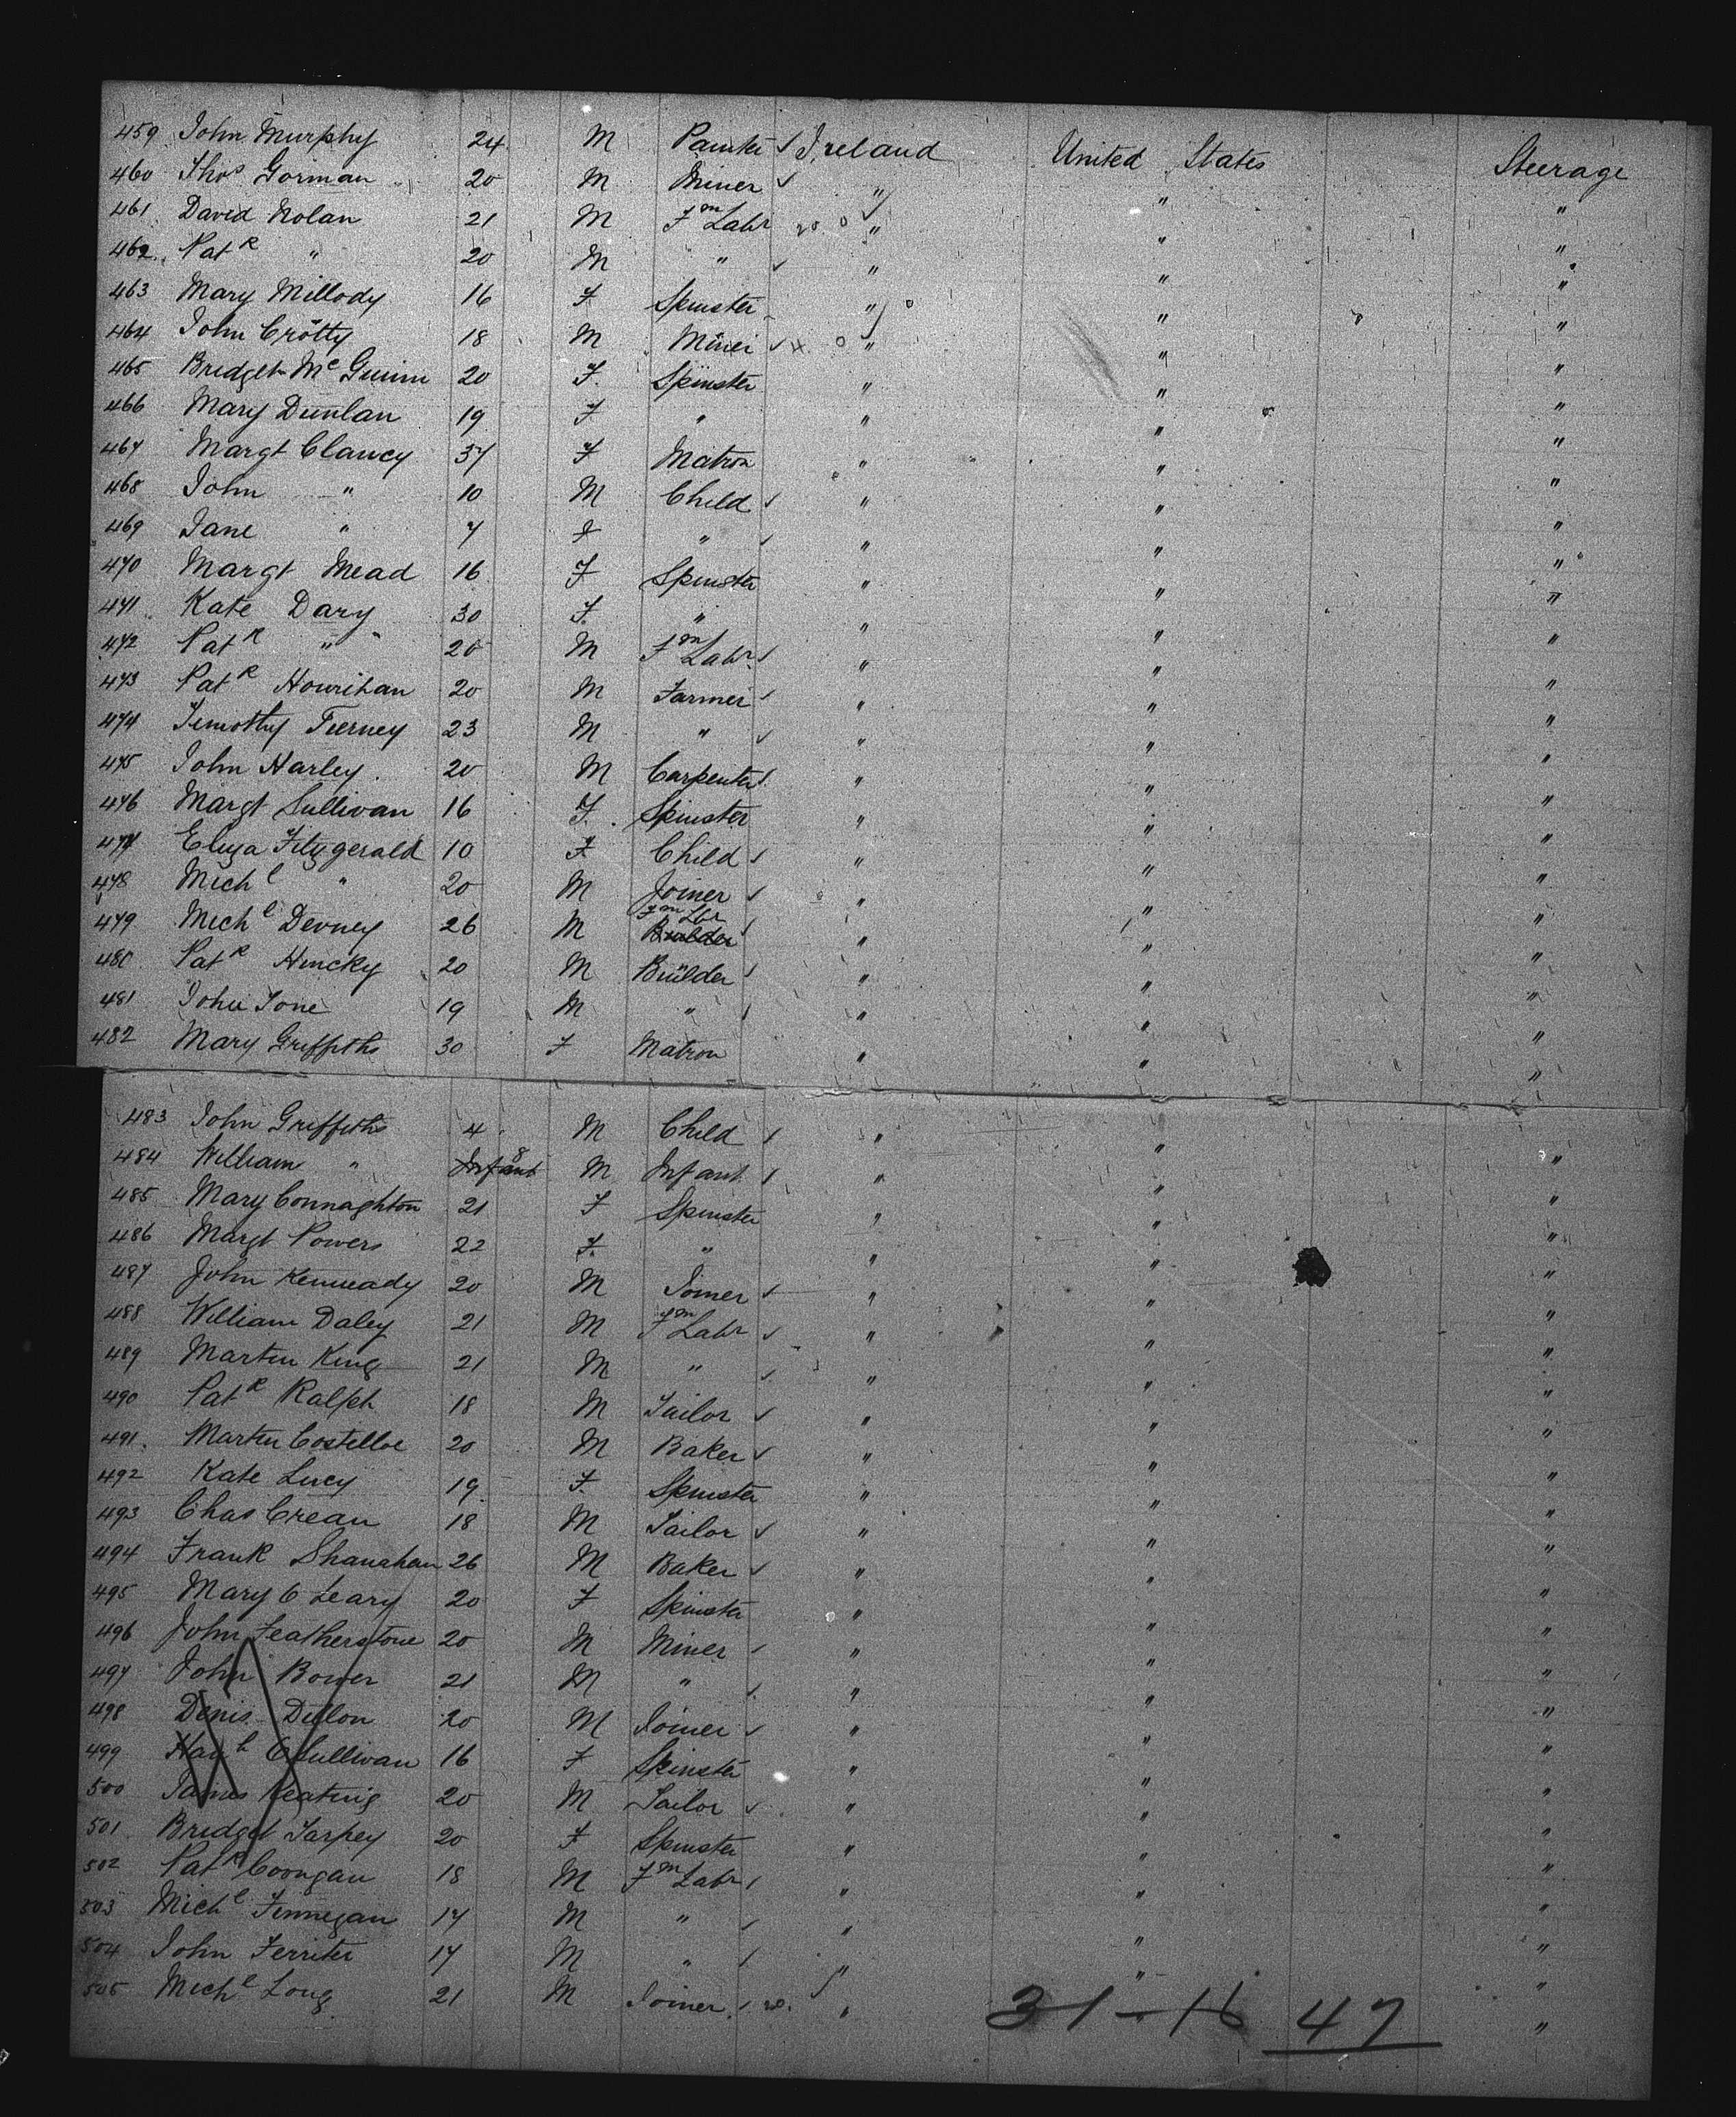 459 John Murphy 24 M Painter Ireland United States Steerage
460 Thos Gorman 20 M Miner " " "
461 David Nolan 21 M Fm Labr " " "
462 Patk " 20 M " " " "
463 Mary Millody 16 F Spinster " " "
464 John Crotty 18 M Miner " " "
465 Bridget McGuinn 20 F. Spinster " " "
466 Mary Dunlan 19 F " " " "
467 Margt Clancy 37 F Matron " " "
468 John " 10 M Child " " "
469 Jane " 7 F " " " "
470 Margt Mead 16 F Spinster " " "
471 Kate Dary 30 F. " " " "
472 Patk " 20 M Fm Labr " " "
473 Patk Hourihan 20 M Farmer " " "
474 Timothy Tierney 23 M " " " "
475 John Harley 20 M Carpenter " " "
476 Margt Sullivan 16 F. Spinster " " "
477 Eliza Fitzgerald 10 F Child " " "
478 Michl " 20 M Joiner " " "
479 Michl Devney 26 M Fm Lbr Builder " " "
480 Patk Hincky 20 M Builder " " "
481 John Tone 19 M " " " "
482 Mary Griffiths 30 F Matron " " "
483 John Griffiths 4 M Child " " "
484 William " Infant 8 M Infant " " "
485 Mary Connaghton 21 F Spinster " " "
486 Margt Powers 22 F. " " " "
487 John Kenneady 20 M Joiner " " "
488 William Daley 21 M Fm Labr " " "
489 Martin King 21 M " " " "
490 Patk Ralph 18 M Tailor " " "
491 Martin Costelloe 20 M Baker " " "
492 Kate Lucy 19 F. Spinster " " "
493 Chas Crean 18 M Tailor " " "
494 Frank Shanahan 26 M Baker " " "
495 Mary O Leary 20 F Spinster " " "
496 John Featherstone 20 M Miner " " "
497 John Bower 21 M " " " "
498 Denis Dillon 20 M Joiner " " "
499 Hanh O Sullivan 16 F Spinster " " "
500 James Keating 20 M Tailor " " "
501 Bridget Tarpey 20 F Spinster " " "
502 Patk Coongan 18 M Fm Labr " " "
503 Michl Finnegan 17 M " " " "
504 John Ferriter 17 M " " " "
505 Michl Long 21 M Joiner " "
31-16 47